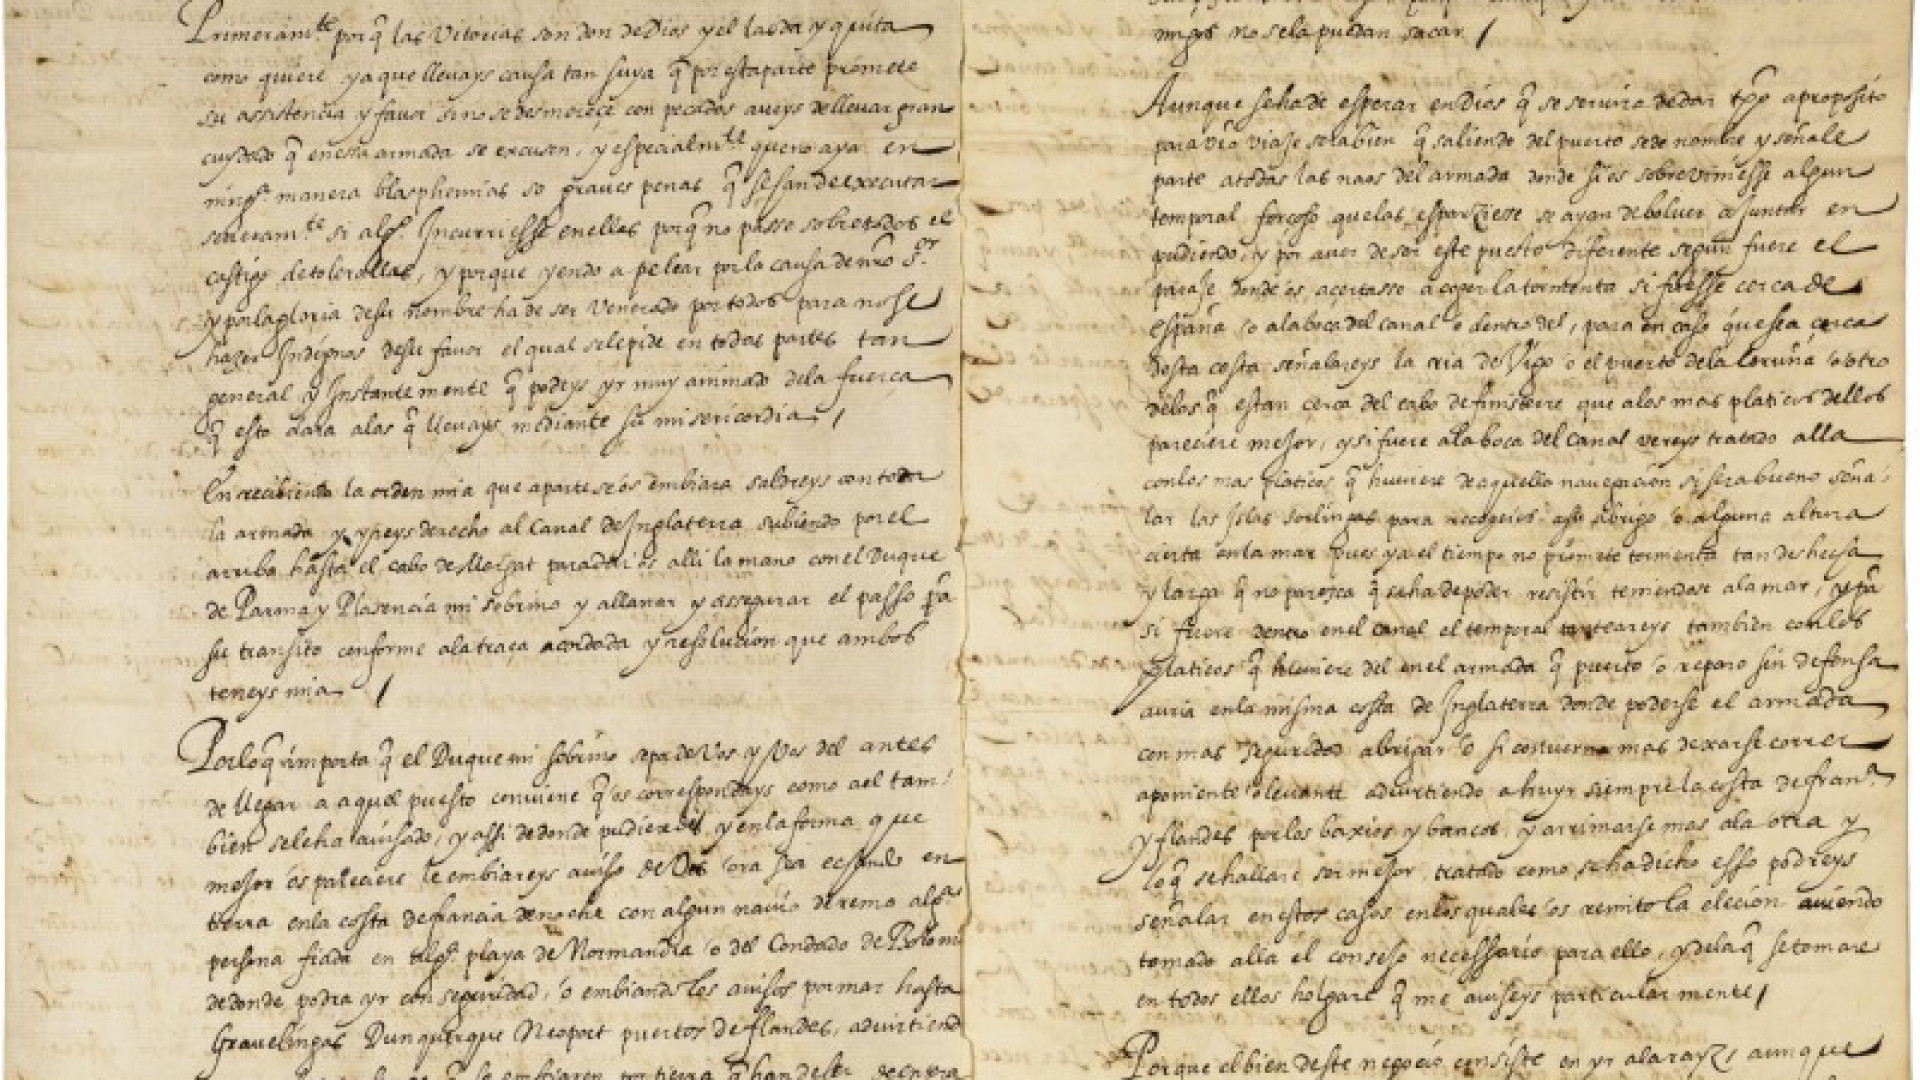 Primeram.te por q̃ las Vitorias son don de Dios y el las da y quita
como quiere ya que lleuays causa tan suya q̃ por esta parte promete
su assistencia y fauor si no se desmereçe con pecados aueys de lleuar gran
cuydado q̃ en essa armada se excusen, y especialm.te que no aya en
ning.a manera blasphemias so graues penas q̃ se han de executar
seueram.te si alg.o Incurriesse en ellas por q̃ no passe sobre todos el
castigo de tolerallas, y porque yendo a pelear por la causa de nr̃o S.or
y por la gloria de su nombre ha de ser venerado por todos para no se
hazer Indignos de su fauor el qual se le pide en todas partes tan
general y Instantemente q̃ podeys yr muy animado de la fuerça
q̃ esto dara a las q̃ lleuays mediante su misericordia /
En recibiendo la orden mia que aparte se os embiara saldreys con toda
la armada y yreys derecho al Canal de Inglaterra subiendo por el
arriba hasta el cabo de Margat para daros alli la mano con el Duque
de Parma y Plasencia mi sobrino y allanar y assegurar el passo p̃a
su transito conforme a la traça acordada y resolucion que ambos
teneys mia /
Por lo q̃ importa q̃ el Duque mi sobrino sepa de Vos y Vos del antes
de llegar a aquel puesto conuiene q̃ os correspondays como a el tam-
bien se le ha auisado, y assi de donde pudieredes y en la forma que
mejor os pareciere le embiareys auiso de Vos ora sea echando en
tierra en la costa de francia de noche con algun nauio de remo alg.a
persona fiada en alg.a playa de Normandia o del Condado de Boloni
de donde podra yr con seguridad, o embiando los auisos por mar hasta
Grauelingas Dunquerque Neoport puertos de flandes, aduirtiendo
q̃ se embiaren por tierra q̃ han de ser
migos no se la puedan sacar /
Aunque se ha de esperar en Dios q̃ se seruira de dar tp̃o a proposito
para vr̃o viaje sera bien q̃ saliendo del puerto se de nombre y señale
parte a todas las naos del armada donde si os sobreviniesse algun
temporal forçoso que las esparziesse se ayan de boluer a juntar en
pudiendo, y por auer de ser este puesto diferente segun fuere el
paraje donde os acertasse a coger la tormenta si fuesse cerca de
españa o a la boca del canal o dentro del, para en caso que sea cerca
desta costa señalareys la ria de Vigo o el puerto de la Coruña o otro
de los q̃ estan cerca del cabo de finisterre que a los mas platicos dellos
pareciere mejor, y si fuere a la boca del Canal vereys tratado alla
con los mas platicos q̃ huuiere de aquella nauegacion si sera bueno seña-
lar las Islas sorlingas para recogeros a su abrigo o alguna altura
cierta en la mar pues ya el tiempo no promete tormenta tan deshecha
y larga q̃ no parezca q̃ se ha de poder resistir teniendose a la mar, y p̃a
si fuere dentro en el canal el temporal tanteareys tambien con los
platicos q̃ huuiere del en el armada q̃ puerto o reparo sin defensa
auria en la misma costa de Inglaterra donde poderse el armada
con mas seguridad abrigar o si conuerna mas dexarse correr
a poniente o leuante aduirtiendo a huyr siempre la costa de fran.a
y flandes por los baxios y bancos y arrimarse mas a la otra y
lo q̃ se hallare ser mejor, tratado como se ha dicho esso podreys
señalar en estos casos en los quales os remito la elecion auiendo
tomado alla el consejo necessario para ello, y de la q̃ se tomare
en todos ellos holgare q̃ me auiseys particularmente /
Porque el bien deste negocio consiste en yr a la rayz aunque